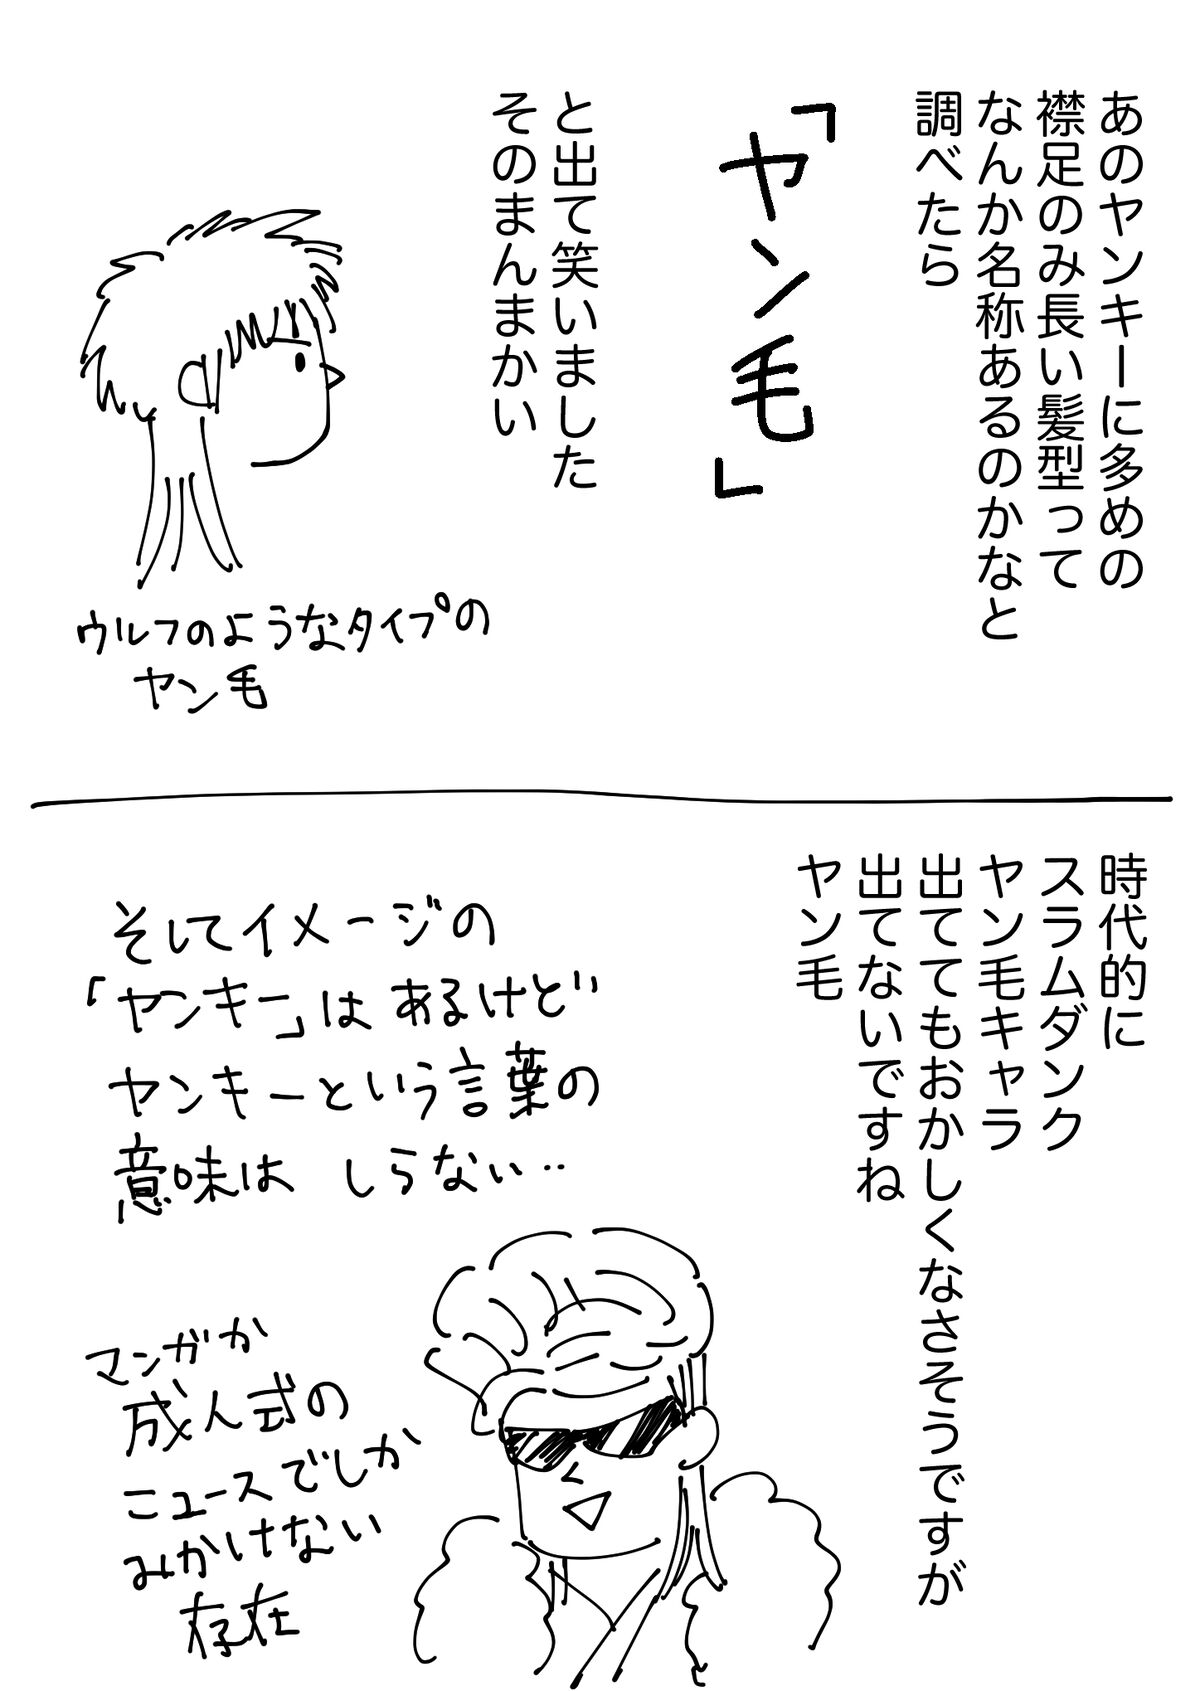 あのヤンキーに多めの
襟足のみ長い髪型って
なんか名称あるのかなと
調べたら
「ヤン毛」
と出て笑いました
そのまんまかい
ウルフのようなタイプの
ヤン毛
時代的に
スラムダンク
ヤン毛キャラ
出ててもおかしくなさそうですが
出てないですね
ヤン毛
そしてイメージの
「ヤンキー」はあるけど
ヤンキーという言葉の
意味は しらない‥
マンガか
成人式の
ニュースでしか
みかけない
存在